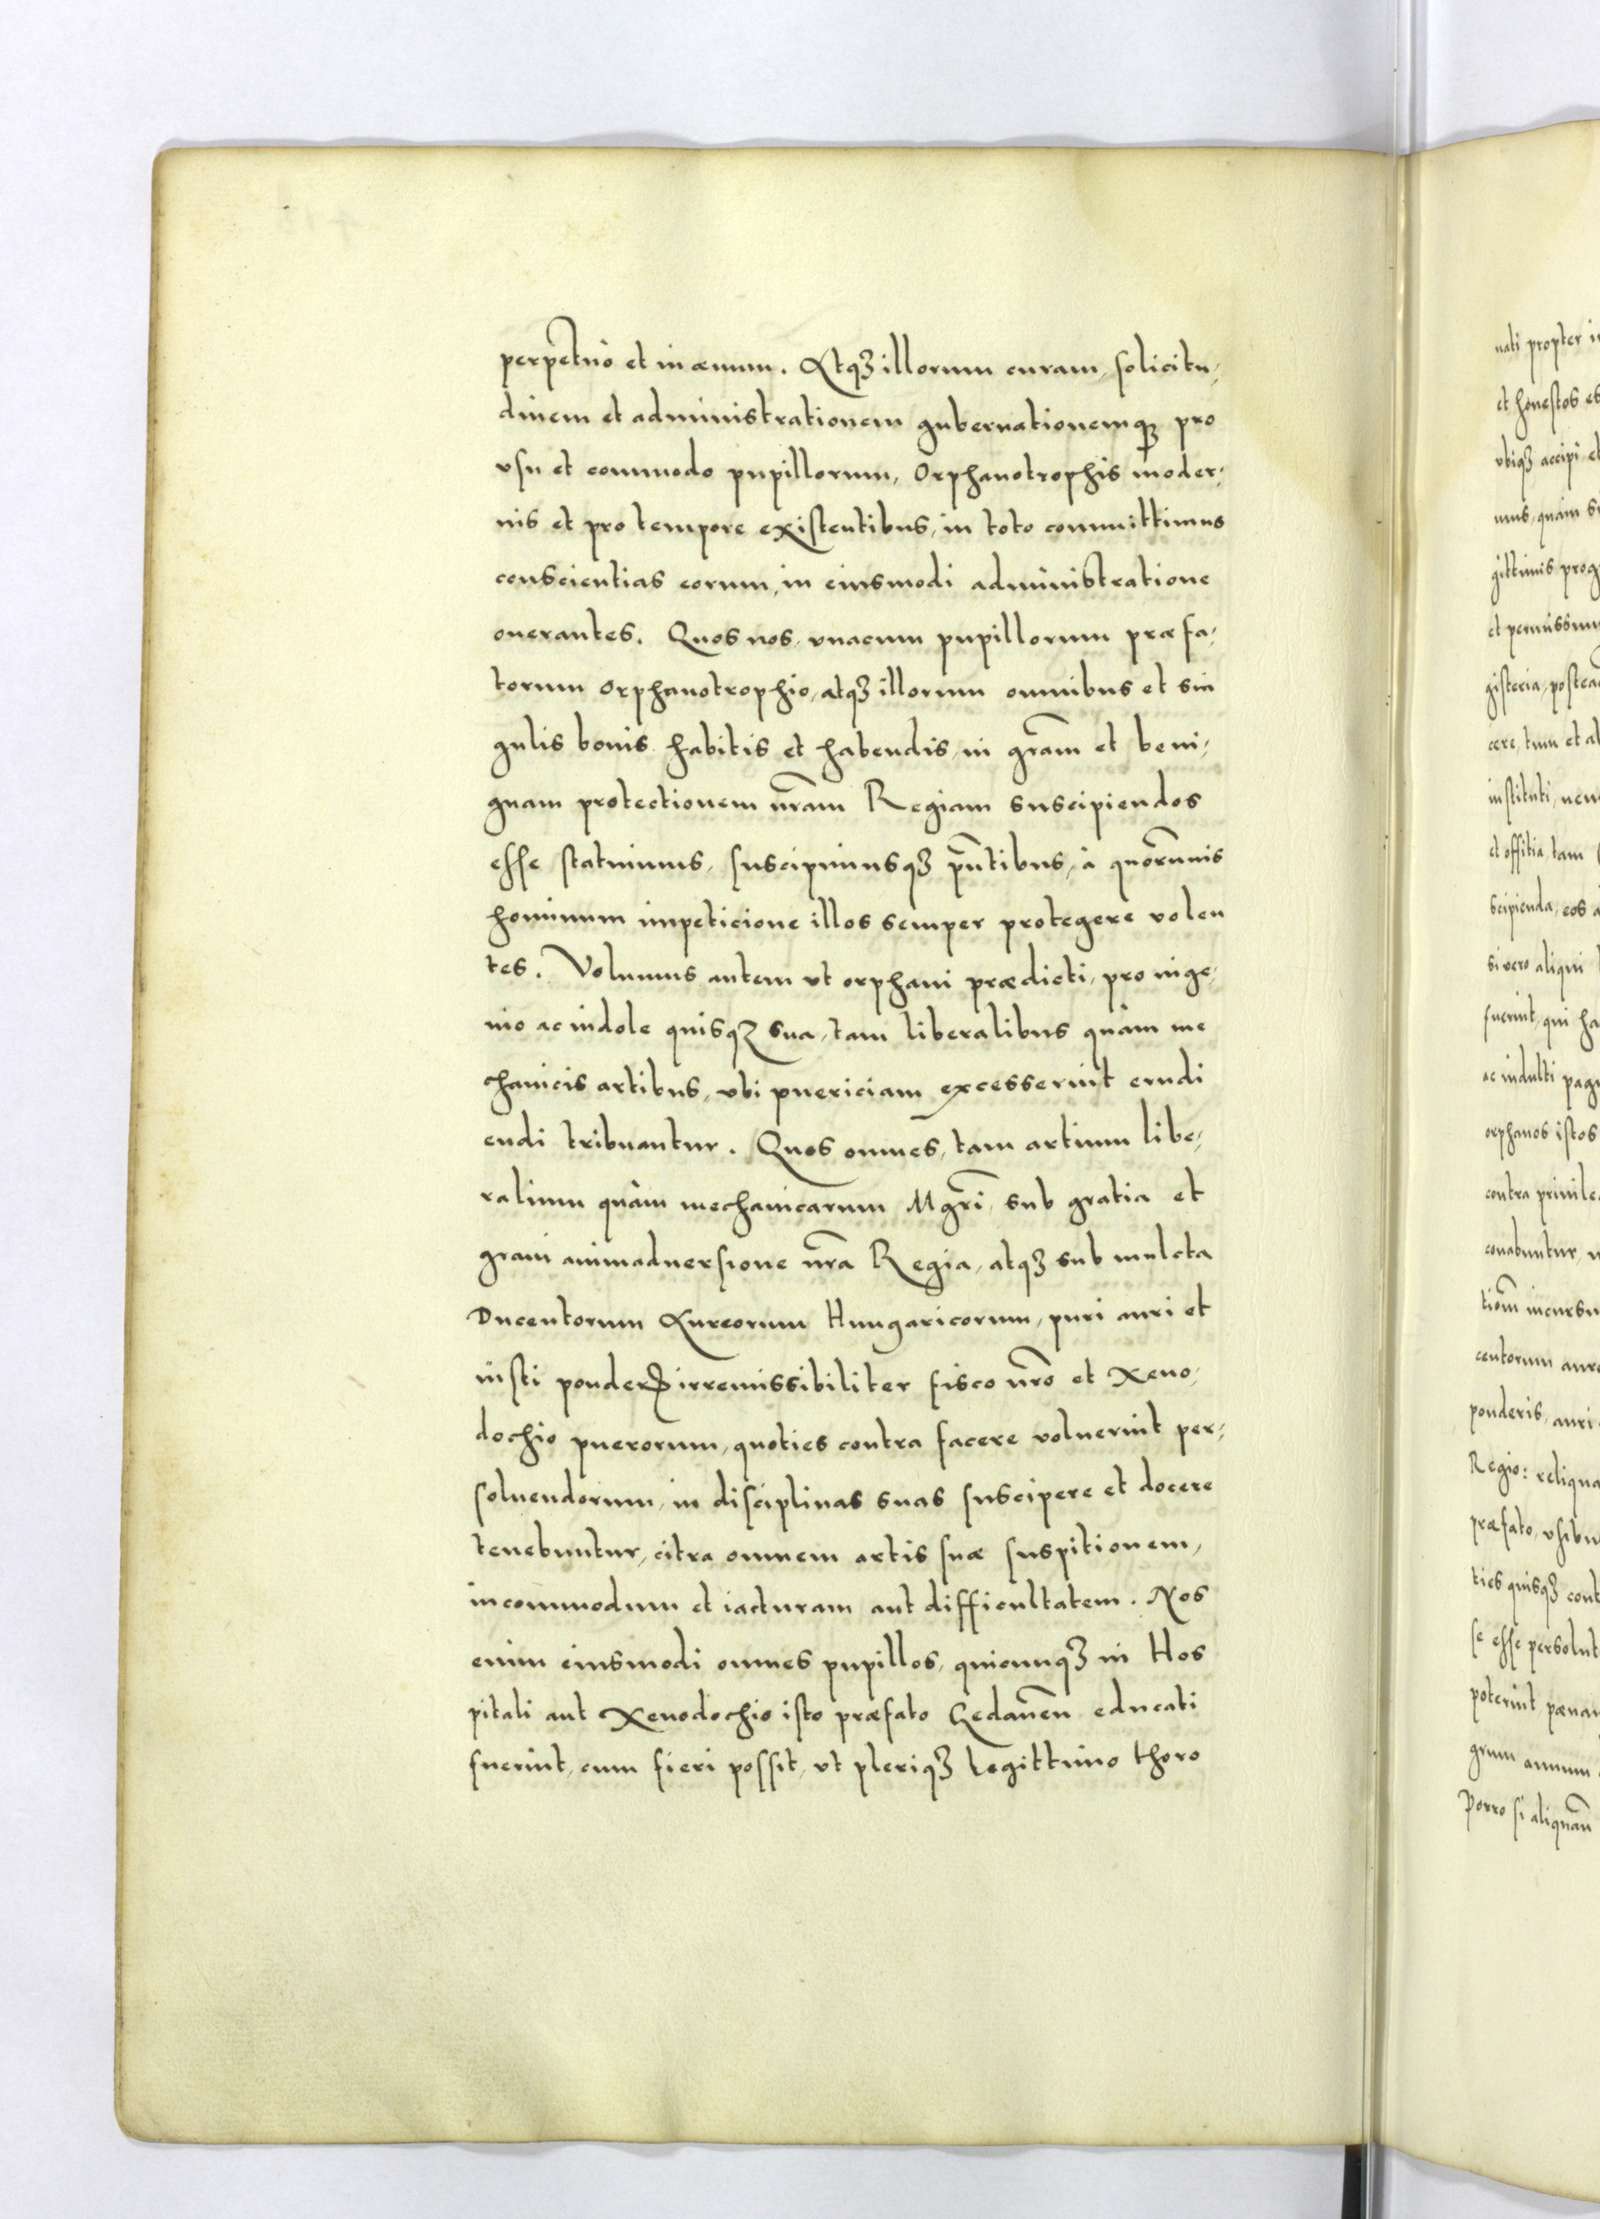 perpetuò et in æuum. Atq₃ illorum curam, solicitu,
dinem et administrationem gubernationemq₃ pro
vsu et commodo pupillorum, Orphanotrophis moder,
nis et pro tempore existentibus, in toto committimus
conscientias eorum, in eiusmodi administratione
onerantes. Quos nos, vnacum pupillorum præfa,
torum orphanotrophio, atq₃ illorum omnibus et sin
gulis bonis habitis et habendis, in gr̃am et beni,
gnam protectionem nr̃am Regiam suscipiendos
esse statuimus, suscipimusq₃ pñtibus, à quorũuis
hominum impeticione illos semper protegere volen
tes. Volumus autem vt orphani prædicti, pro inge,
nio ac indole quisq₃ sua, tam liberalibus quàm me
chanicis artibus, vbi puericiam excesserint erudi
endi tribuantur. Quos omnes, tam artium libe,
ralium quàm mechanicarum Mgr̃i, sub gratia et
graui animaduersione nr̃a Regia, atq₃ sub mulcta
Ducentorum Aureorum Hungaricorum, puri auri et
iusti ponderꝭ irremissibiliter fisco nr̃o et Xeno,
dochio puerorum, quoties contra facere voluerint per,
soluendorum, in disciplinas suas suscipere et docere
tenebuntur, citra omnem artis suæ suspitionem,
incommodum et iacturam aut difficultatem. Nos
enim eiusmodi omnes pupillos, quicunq₃ in Hos
pitali aut Xenodochio isto præfato Gedanẽn educati
fuerint, cum fieri possit, vt pleriq₃ legittimo thoro
nati propter
et honestos
vbiq₃ accipi et
mus, quàm
gittimis
et permissim
gisteria,
cere, tum et
instituti,
et offitia, tam
scipienda, eos
si vero aliqui
fuerint, qui
ac indulti
orphanos istos
contra
conabuntur,
tiom̃
centorum
ponderis, auri
Regio: reliqua
præfato,
ties quisq₃
se esse
poterint,
grum annum
Porro si